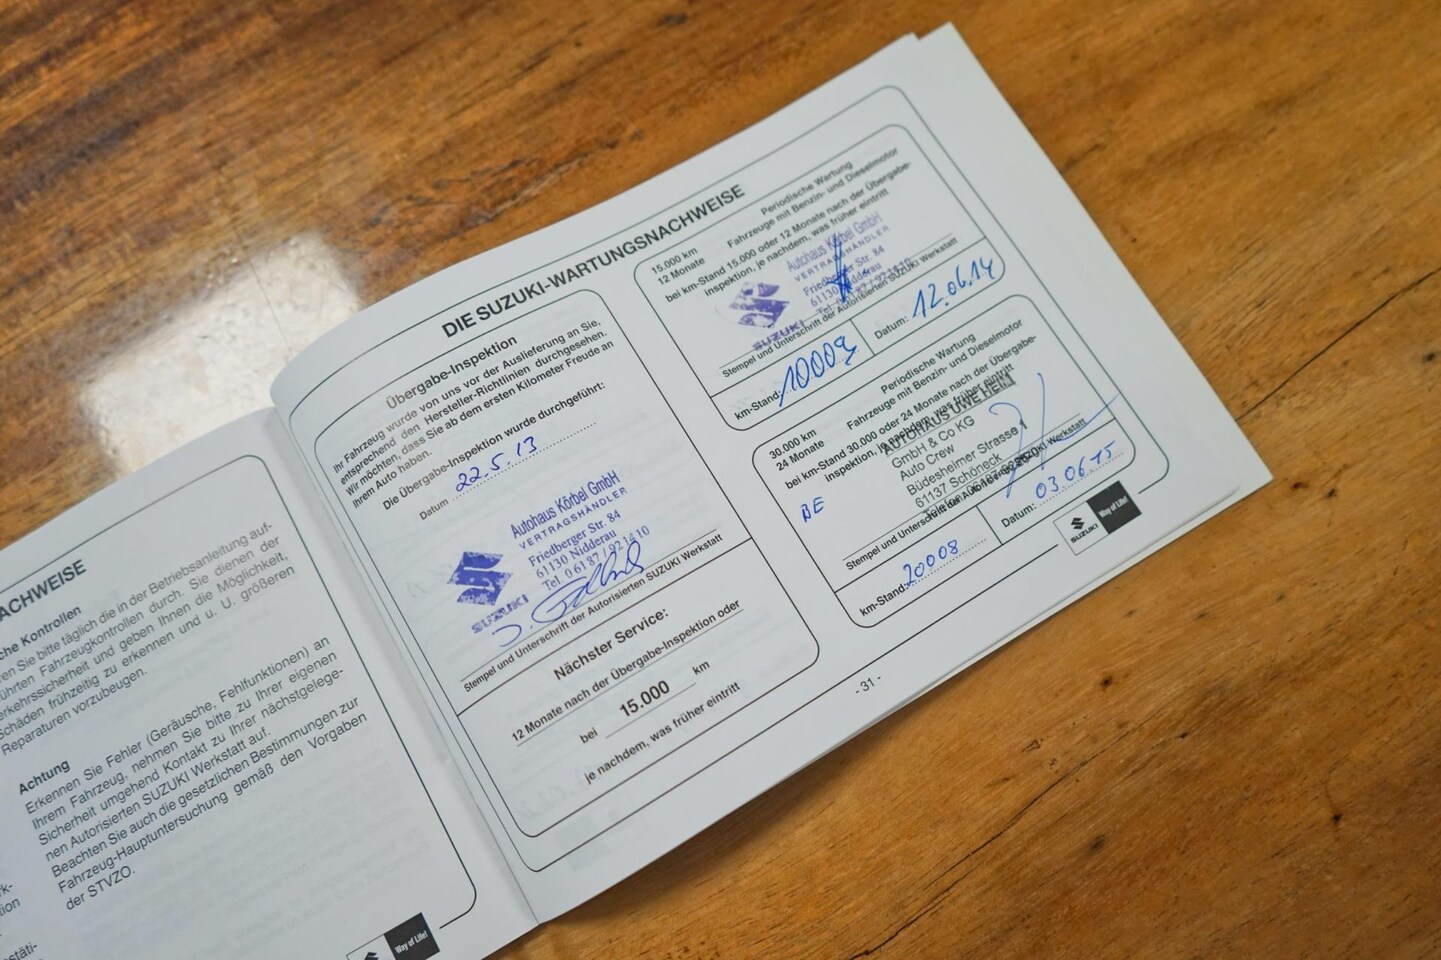 ACHWEISE
che Kontrollen
en Sie bitte täglich die in der Betriebsanleitung auf-
ührten Fahrzeugkontrollen durch. Sie dienen der
erkehrssicherheit und geben Ihnen die Möglichkeit,
Schäden frühzeitig zu erkennen und u. U. größeren
Reparaturen vorzubeugen.
Achtung
Erkennen Sie Fehler (Geräusche, Fehlfunktionen) an
Ihrem Fahrzeug, nehmen Sie bitte zu Ihrer eigenen
Sicherheit umgehend Kontakt zu Ihrer nächstgelege-
nen Autorisierten SUZUKI Werkstatt auf.
Beachten Sie auch die gesetzlichen Bestimmungen zur
Fahrzeug-Hauptuntersuchung gemäß den Vorgaben
der STVZO.
Way of Life!
DIE SUZUKI-WARTUNGSNACHWEISE
Übergabe-Inspektion
Ihr Fahrzeug wurde von uns vor der Auslieferung an Sie,
entsprechend den Hersteller-Richtlinien durchgesehen.
Wir möchten, dass Sie ab dem ersten Kilometer Freude an
Ihrem Auto haben.
Die Übergabe-Inspektion wurde durchgeführt:
Datum 22.5.13
Autohaus Körbel GmbH
VERTRAGSHÄNDLER
Friedberger Str. 84
61130 Nidderau
Tel. 0 61 87 / 92 14 10
SUZUKI
Stempel und Unterschrift der Autorisierten SUZUKI Werkstatt
Nächster Service:
12 Monate nach der Übergabe-Inspektion oder
bei 15.000 km
je nachdem, was früher eintritt
15.000 km
12 Monate
Periodische Wartung
Fahrzeuge mit Benzin- und Dieselmotor
bei km-Stand 15.000 oder 12 Monate nach der Übergabe-
Inspektion, je nachdem, was früher eintritt
Autohaus Körbel GmbH
VERTRAGSHÄNDLER
Friedberger Str. 84
61130 Nidderau
Tel. 0 61 87 / 92 14 10
SUZUKI
Stempel und Unterschrift der Autorisierten SUZUKI Werkstatt
km-Stand: 10009
Datum: 12.06.14
30.000 km
24 Monate
Periodische Wartung
Fahrzeuge mit Benzin- und Dieselmotor
bei km-Stand 30.000 oder 24 Monate nach der Übergabe-
Inspektion, je nachdem, was früher eintritt
AUTOHAUS UWE HEIM
GmbH & Co KG
Auto Crew
Büdesheimer Strasse 1
61137 Schöneck
BE
Stempel und Unterschrift der Autorisierten SUZUKI Werkstatt
km-Stand: 20008
Datum: 03.06.15
SUZUKI
Way of Life!
- 31 -